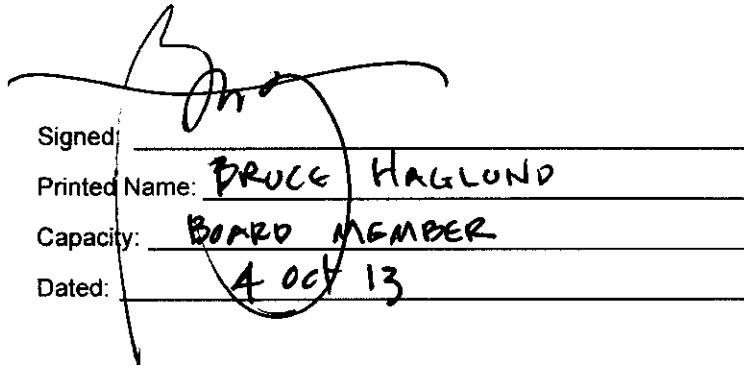 Signed:
Printed Name: BRUCE HAGLUND
Capacity: BOARD MEMBER
Dated: 4 Oct 13